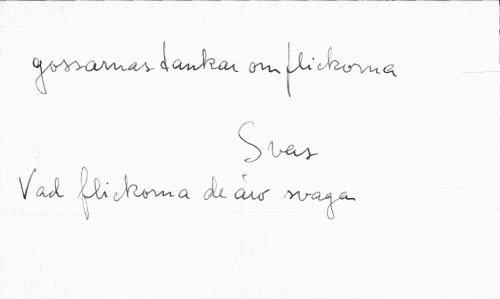 gossarnas tankar om flickorna
Svar
Vad flickorna de äro svaga